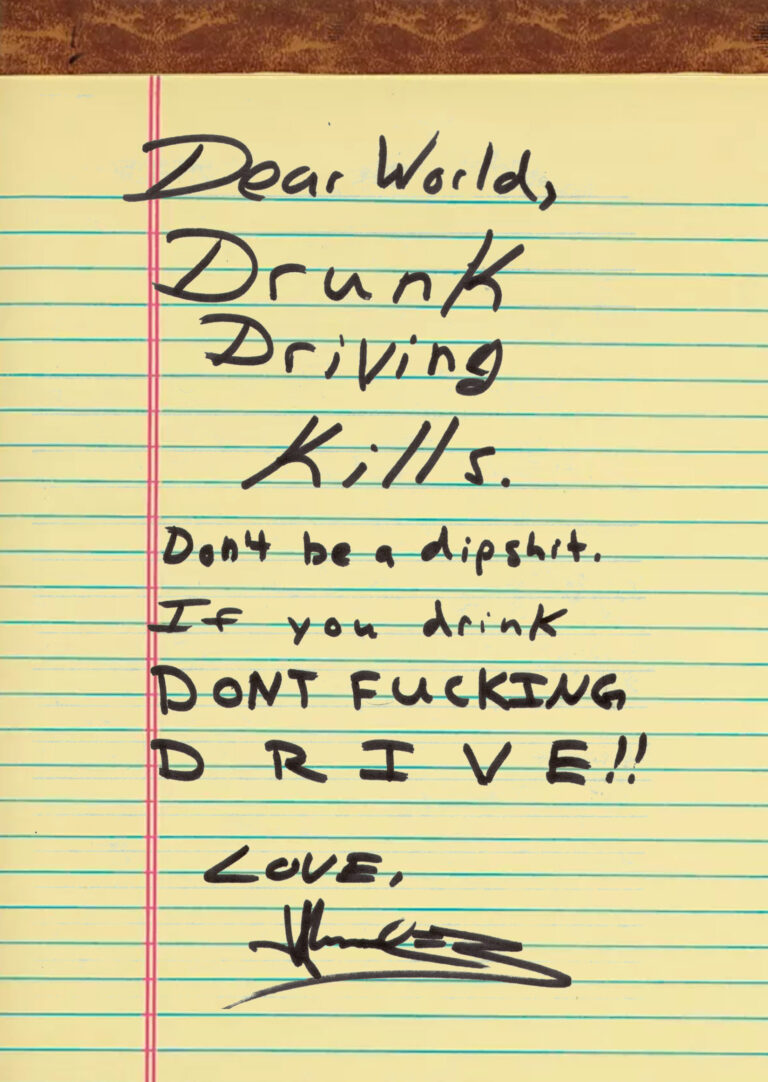 Dear World,
Drunk
Driving
Kills.
Don't be a dipshit.
If you drink
DONT FUCKING
DRIVE!!
LOVE,